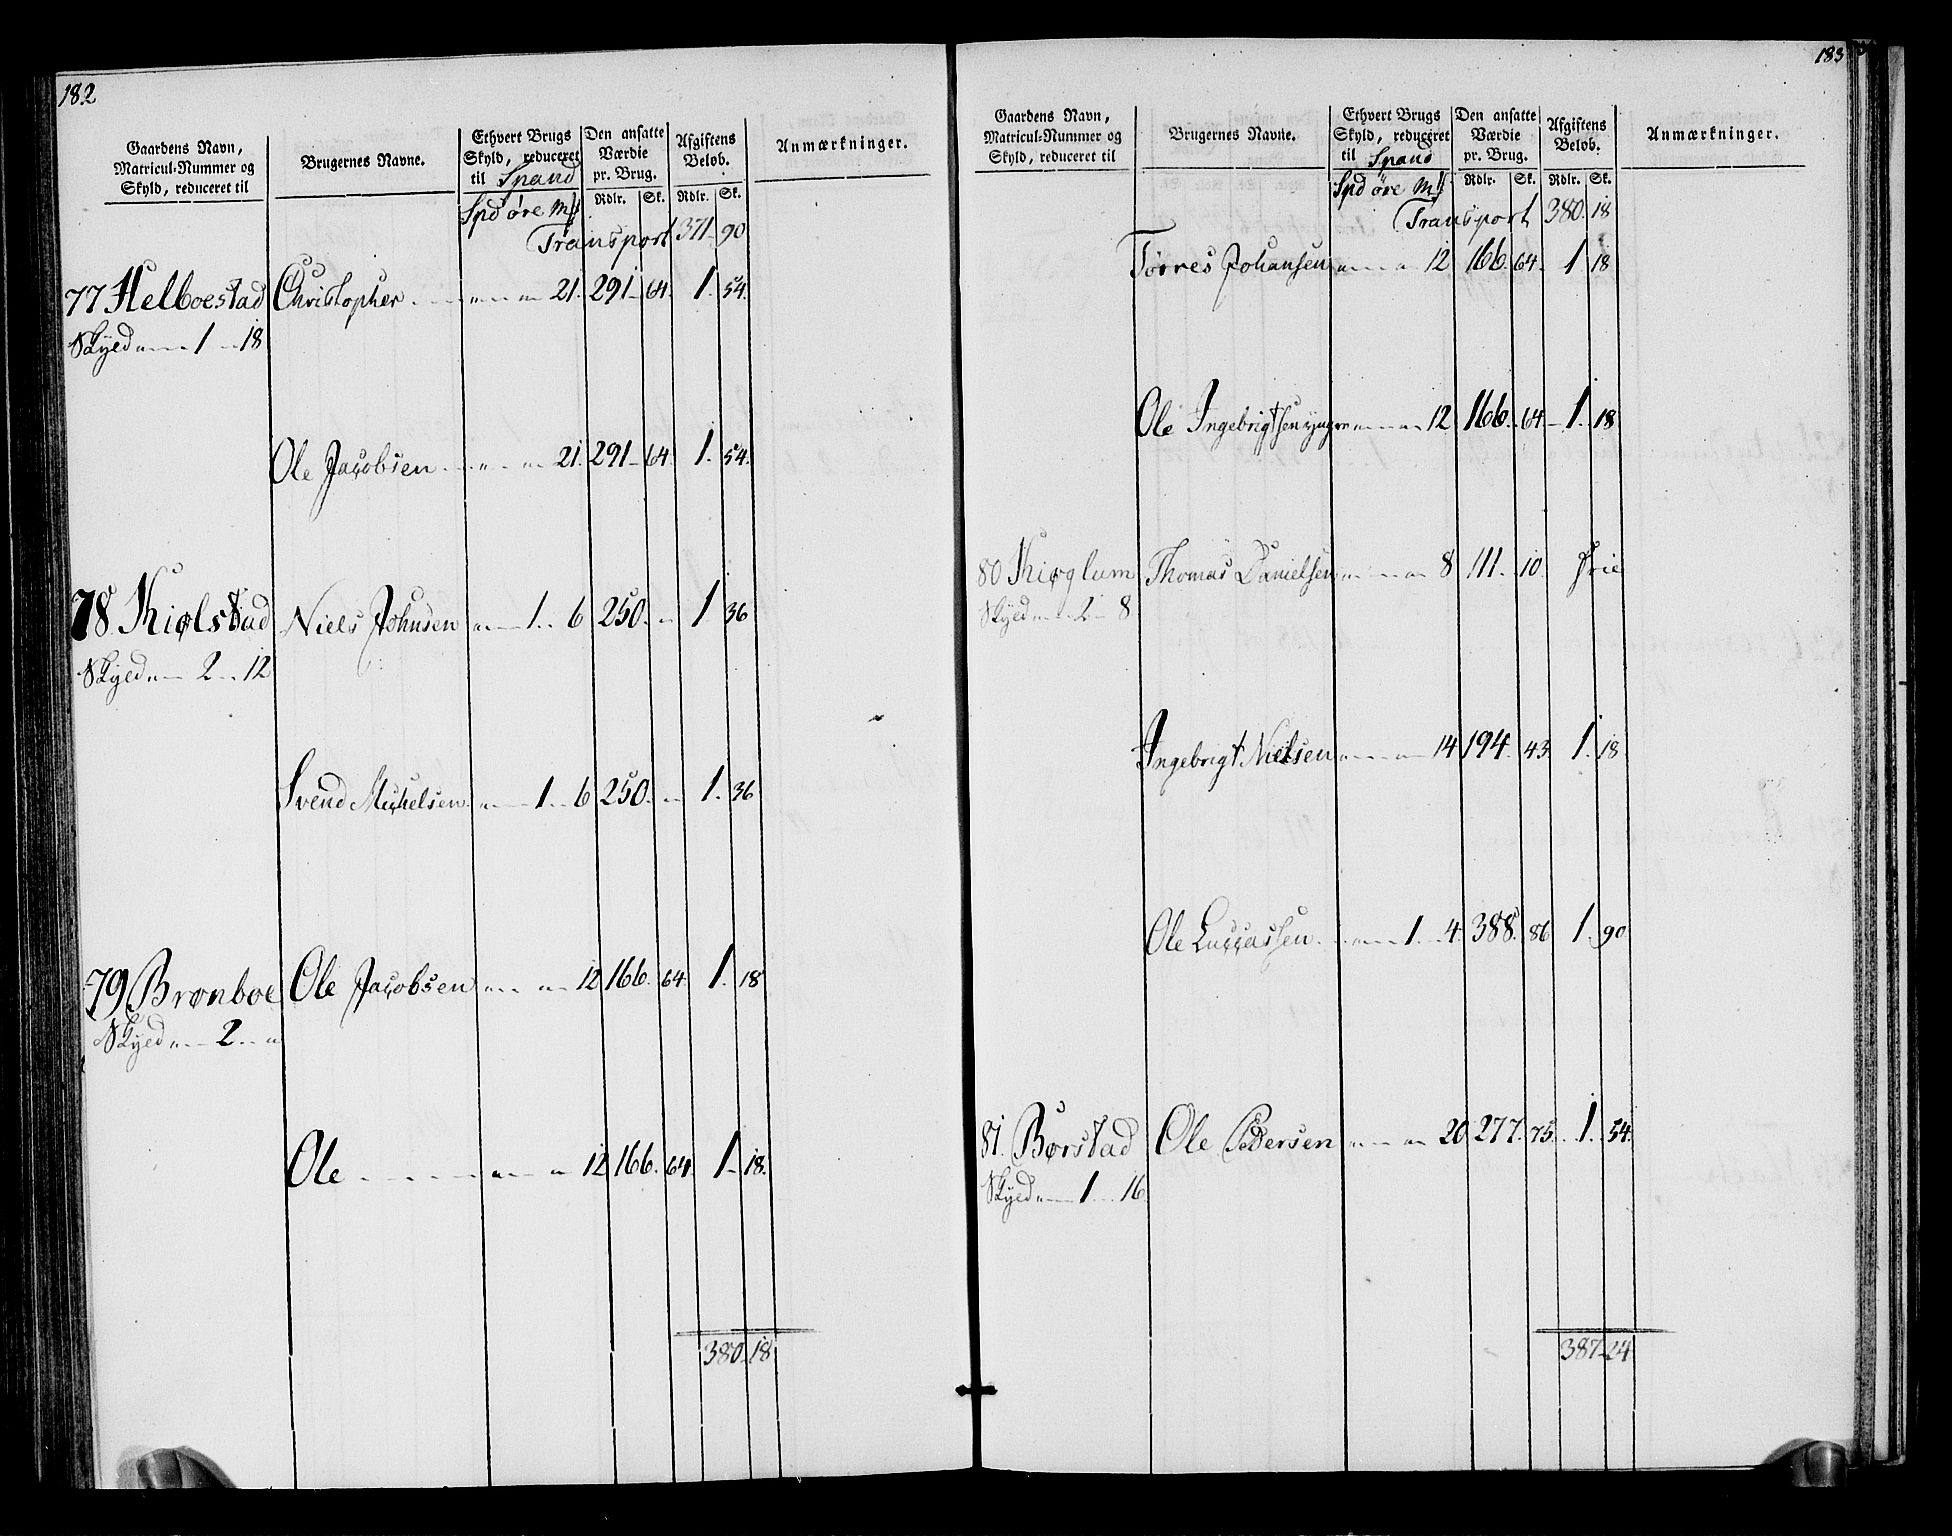 182
Gaardens Navn, Matricul-Nummer og Skyld, reduceret til
Brugernes Navne.
Ethvert Brugs Skyld, reduceret til Spand
Den ansatte Værdie pr. Brug.
Afgiftens Beløb.
Anmærkninger.
Rdlr. Sk. Rdlr. Sk.
Spd øre Mk
Transport 371 90
77 Helboestad Christopher 21. 291 64. 1. 54.
Skyld 1 18
Ole Jacobsen 21. 291 64. 1. 54.
78. Kiølstad Niels Johnsen 1 6 250. 1 36
Skyld 2 12
Svend Michelsen 1 6 250. 1. 36
79 Brønboe Ole Jacobsen 12 166. 64. 1. 18
Skyld 2
Ole 12 166. 64. 1 18.
380 18
183
Gaardens Navn, Matricul-Nummer og Skyld, reduceret til
Brugernes Navne.
Ethvert Brugs Skyld, reduceret til Spand
Den ansatte Værdie pr. Brug.
Afgiftens Beløb.
Anmærkninger.
Rdlr. Sk. Rdlr. Sk.
Spd øre Mk
Transport 380. 18
Tørres Johansen 12 166. 64. 1 18
Ole Ingebrigtsen yngre 12 166. 64 1. 18
80 Kiøglum Thomas Danielsen 8 111. 10. frie
Skyld 2 8
Ingebrigt Nielsen 14 194. 43. 1. 18
Ole Luccassen 1. 4. 388. 86 1. 90
81. Børstad Ole Pedersen 20 277. 75. 1. 54.
Skyld 1 16
387 24